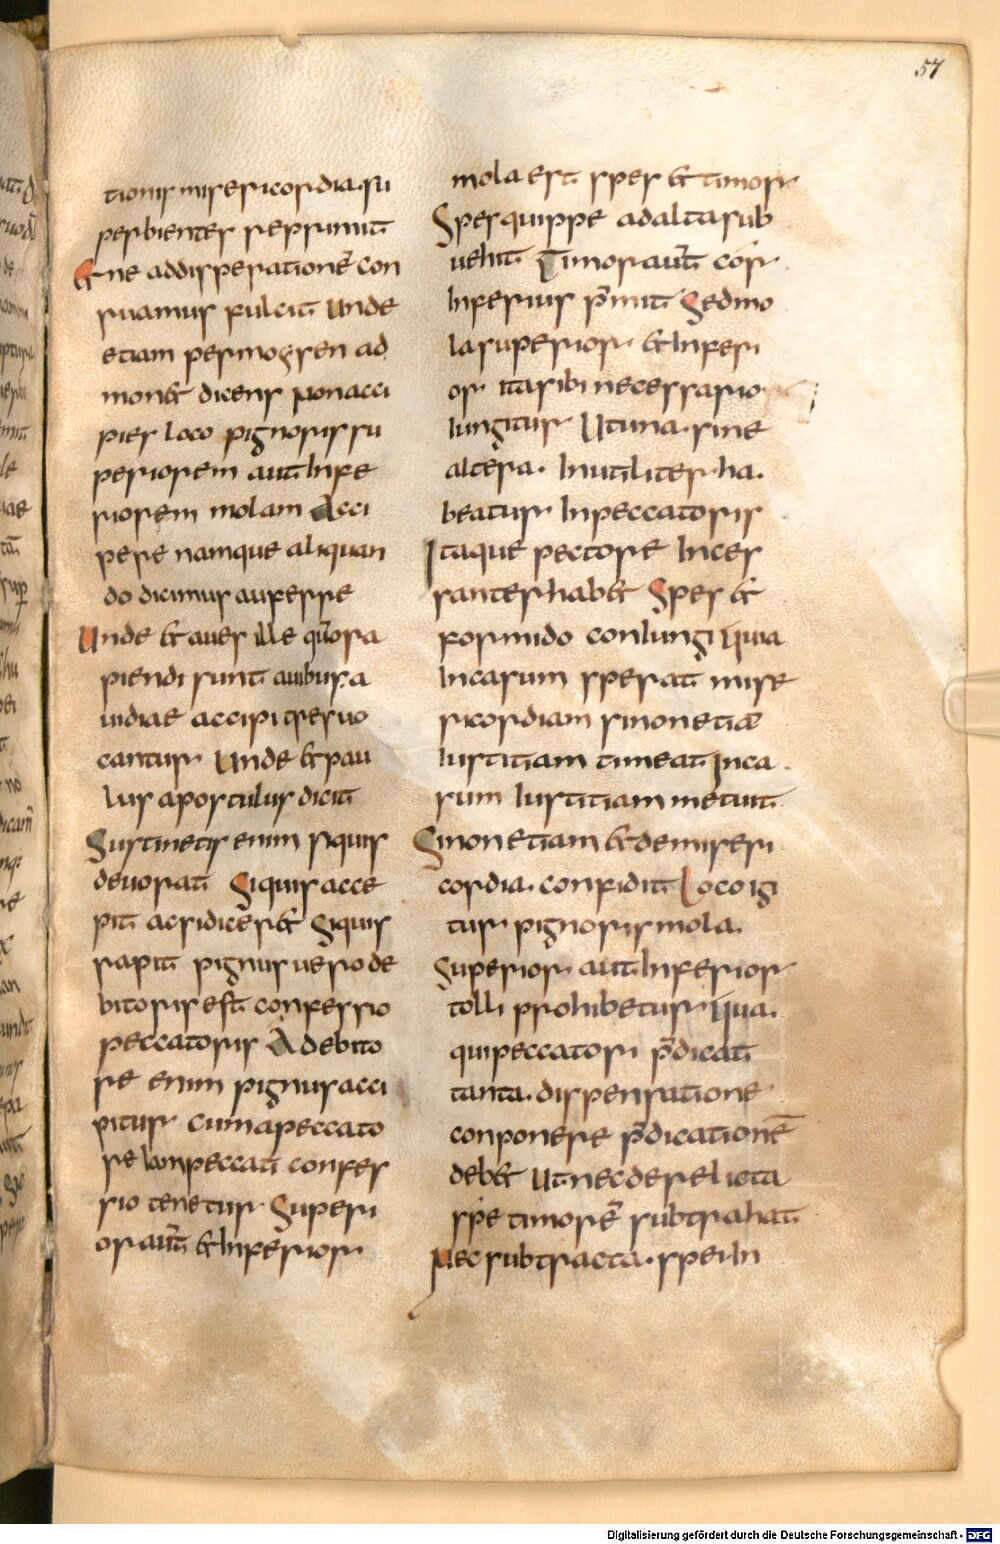 57
tionis misericordia su
perbientes reprimit
& ne addisperationē con
ruamus fulcit Unde
etiam per mogsen ad
mon& dicens Non acci
pies loco pignoris su
periorem aut Infe
riorem molam Acci
pere namque aliquan
do dicimus auferre
Unde & aues ille quȩ ra
piendi sunt auibus a
uidiae accipitres uo
cantur Unde & pau
lus apostulus dicit
Sustinetis enim siquis
deuorat Siquis acce
pit acsi dicer& Siquis
rapit pignus uero de
bitoris est confessio
peccatoris A debito
re enim pignus acci
pitur cum a peccato
re Iam peccati confes
sio tenetur Superi
or aut̄ & Inferior
mola est spes & timor
Spes quippe ad alta sub
uehit Timor aut̄ cor
Inferius p̄mit Sed mo
la superior & Inferi
or ita sibi necessario
Iungitur Ut una sine
altera Inutiliter ha
beatur In peccatoris
Itaque pectore Inces
santer hab& Spes &
formido coniungi Quia
Incasum sperat mise
ricordiam si non etiā
Iustitiam timeat Inca
sum Iustitiam metuit
Si non etiam & de miseri
cordia confidit Loco igi
tur pignoris mola
Superior aut Inferior
tolli prohibetur Quia
qui peccatori p̄dicat
tanta dispensatione
conponere p̄dicationē
deb& Ut nec derelicta
spe timorē subtrahat
Nec subtracta spei In
Digitalisierung gefördert durch die Deutsche Forschungsgemeinschaft - DFG